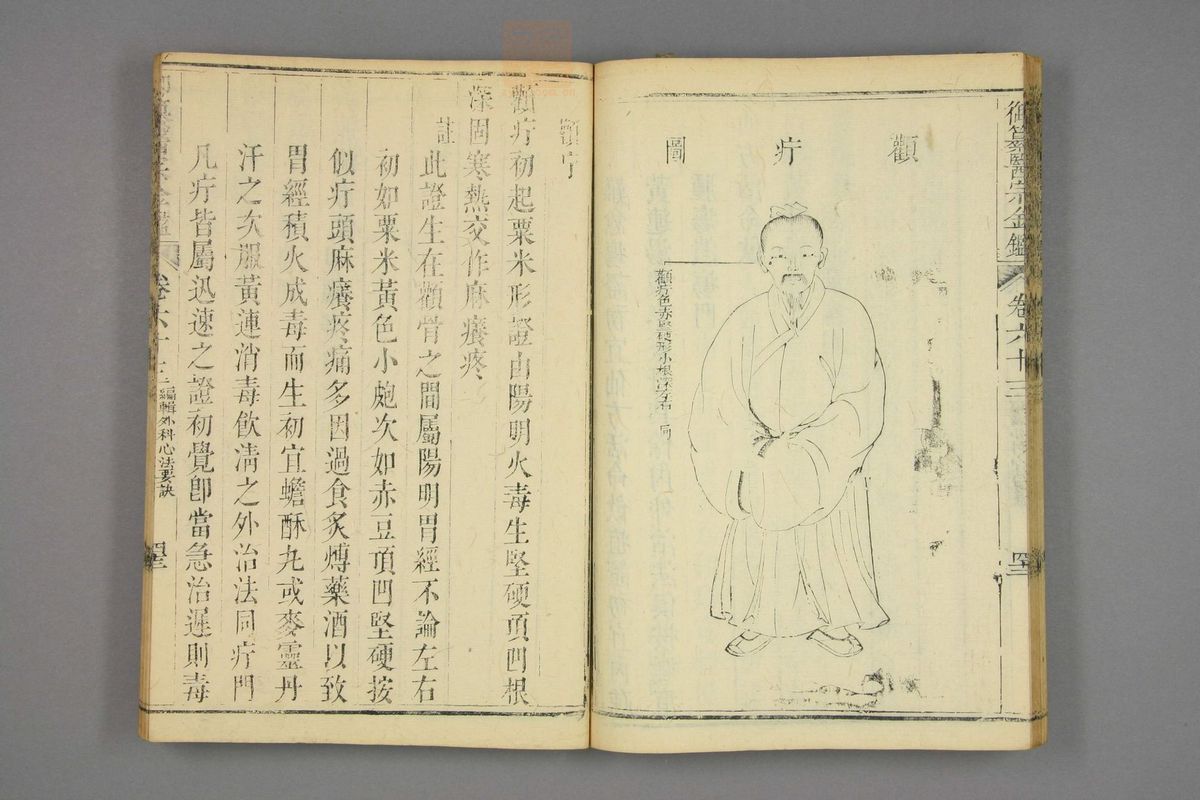 御纂醫宗金鑑 卷六十三
顴疔圖
顴疔色赤堅硬形小根深左右同
顴疔
顴疔初起粟米形證由陽明火毒生堅硬頂凹根
深固寒熱交作麻癢疼
註
此證生在顴骨之間屬陽明胃經不論左右
初如粟米黃色小皰次如赤豆頂凹堅硬按
似疔頭麻癢疼痛多因過食炙煿藥酒以致
胃經積火成毒而生初宜蟾酥丸或麥靈丹
汗之次服黃連消毒飲清之外治法同疔門
凡疔皆屬迅速之證初覺卽當急治遲則毒
卷六十三 編輯外科心法要訣